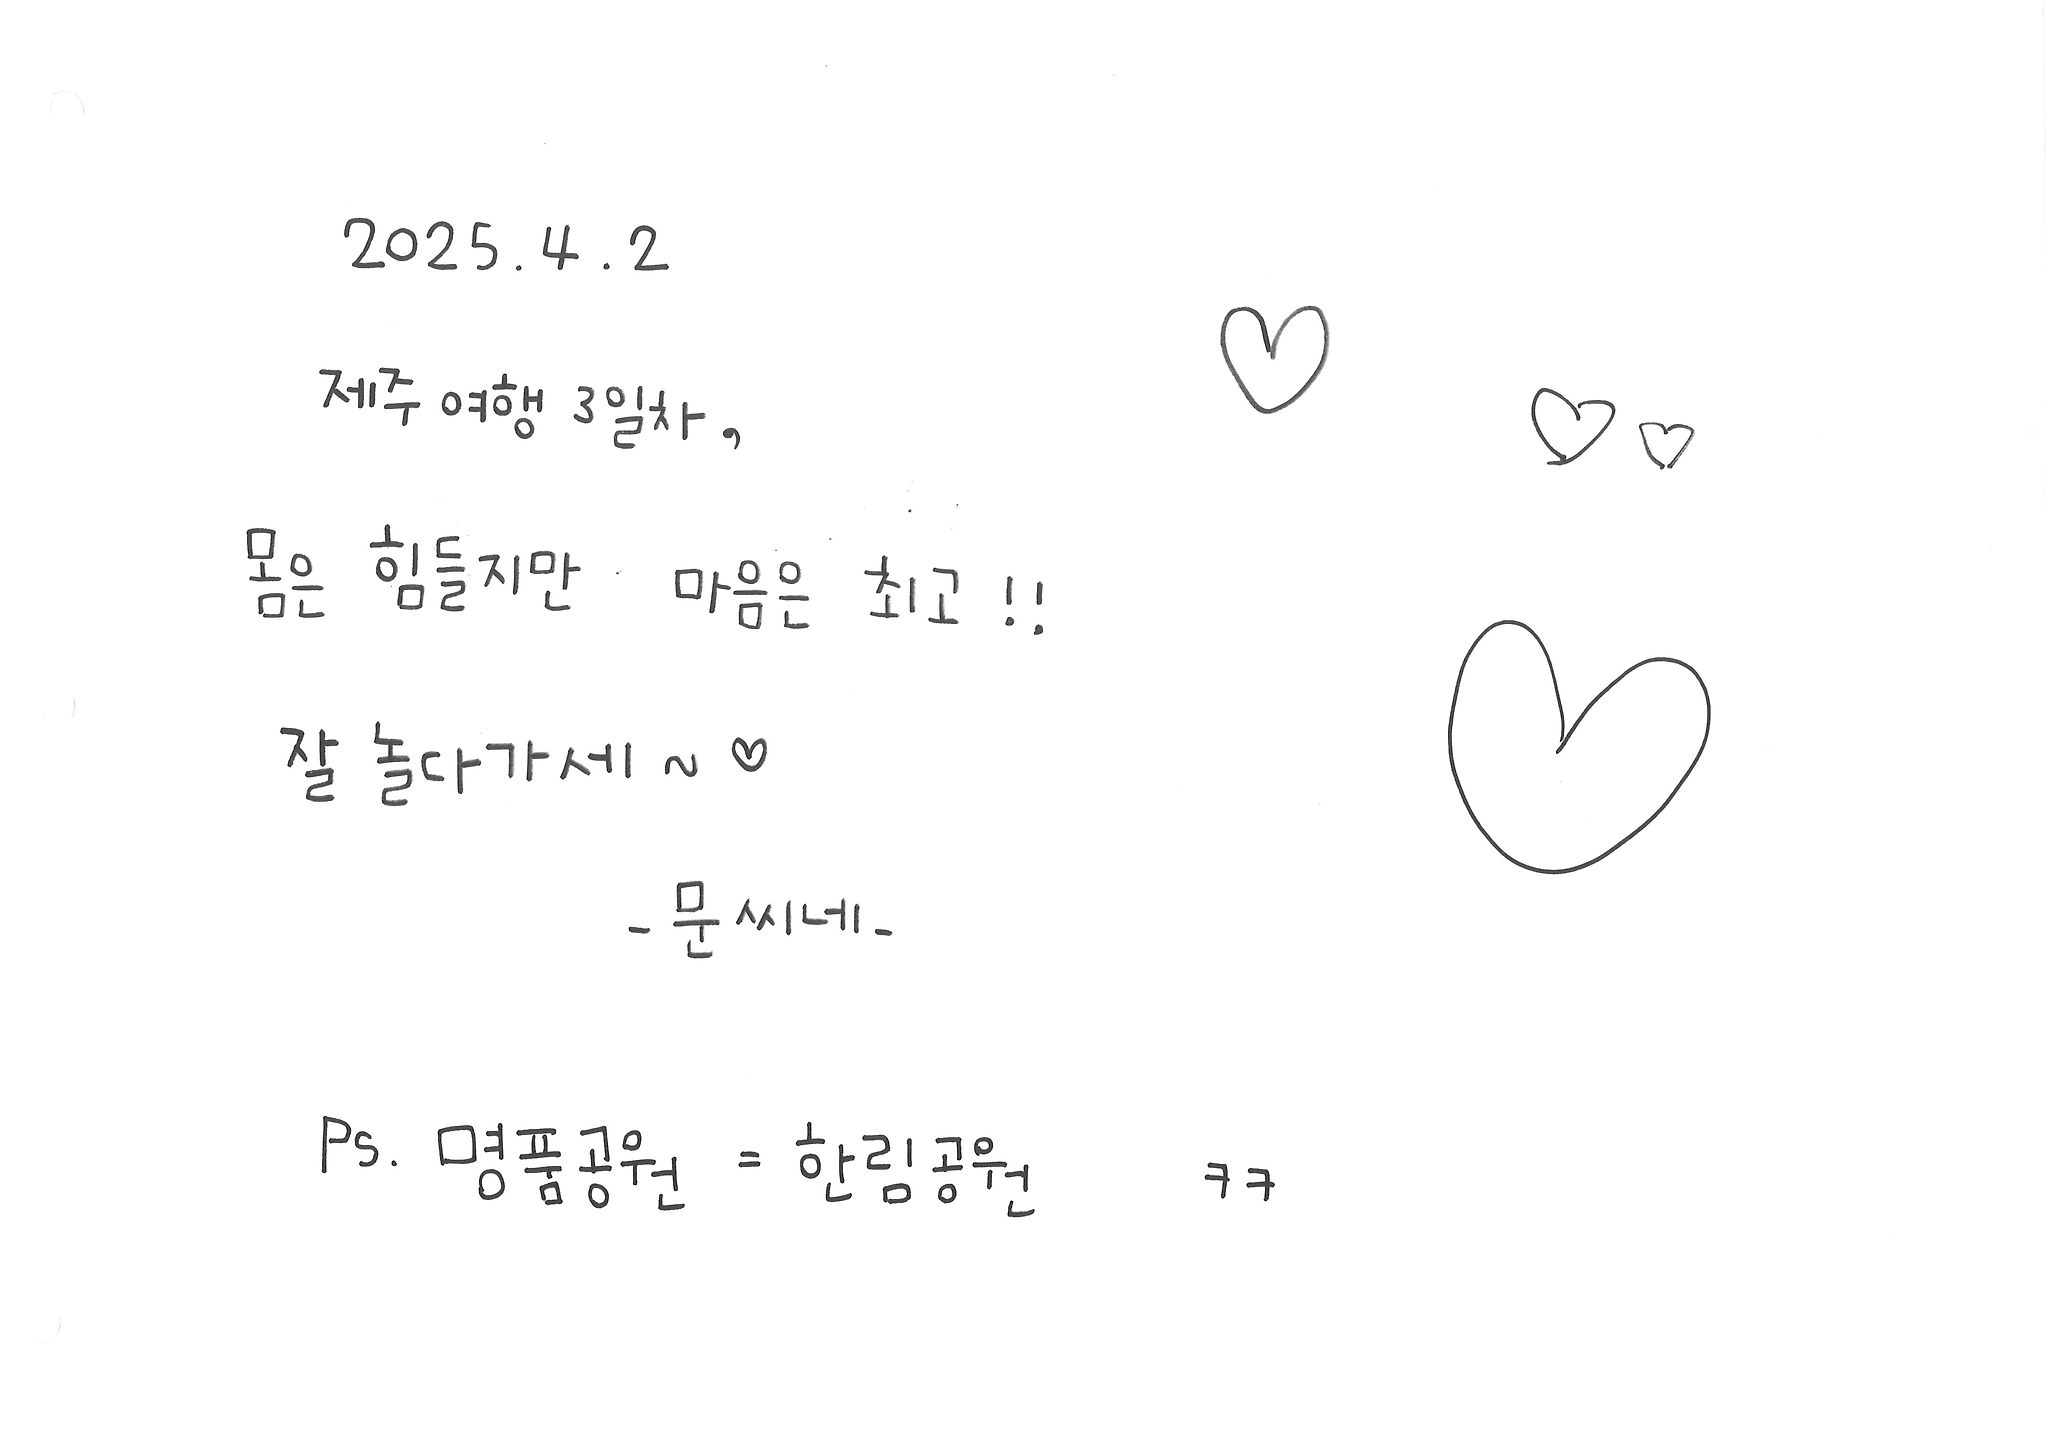 2025.4.2
제주 여행 3일차,
몸은 힘들지만 마음은 최고!!
잘 놀다가세~♡
-문씨네-
Ps. 명품공원 = 한림공원 ㅋㅋ